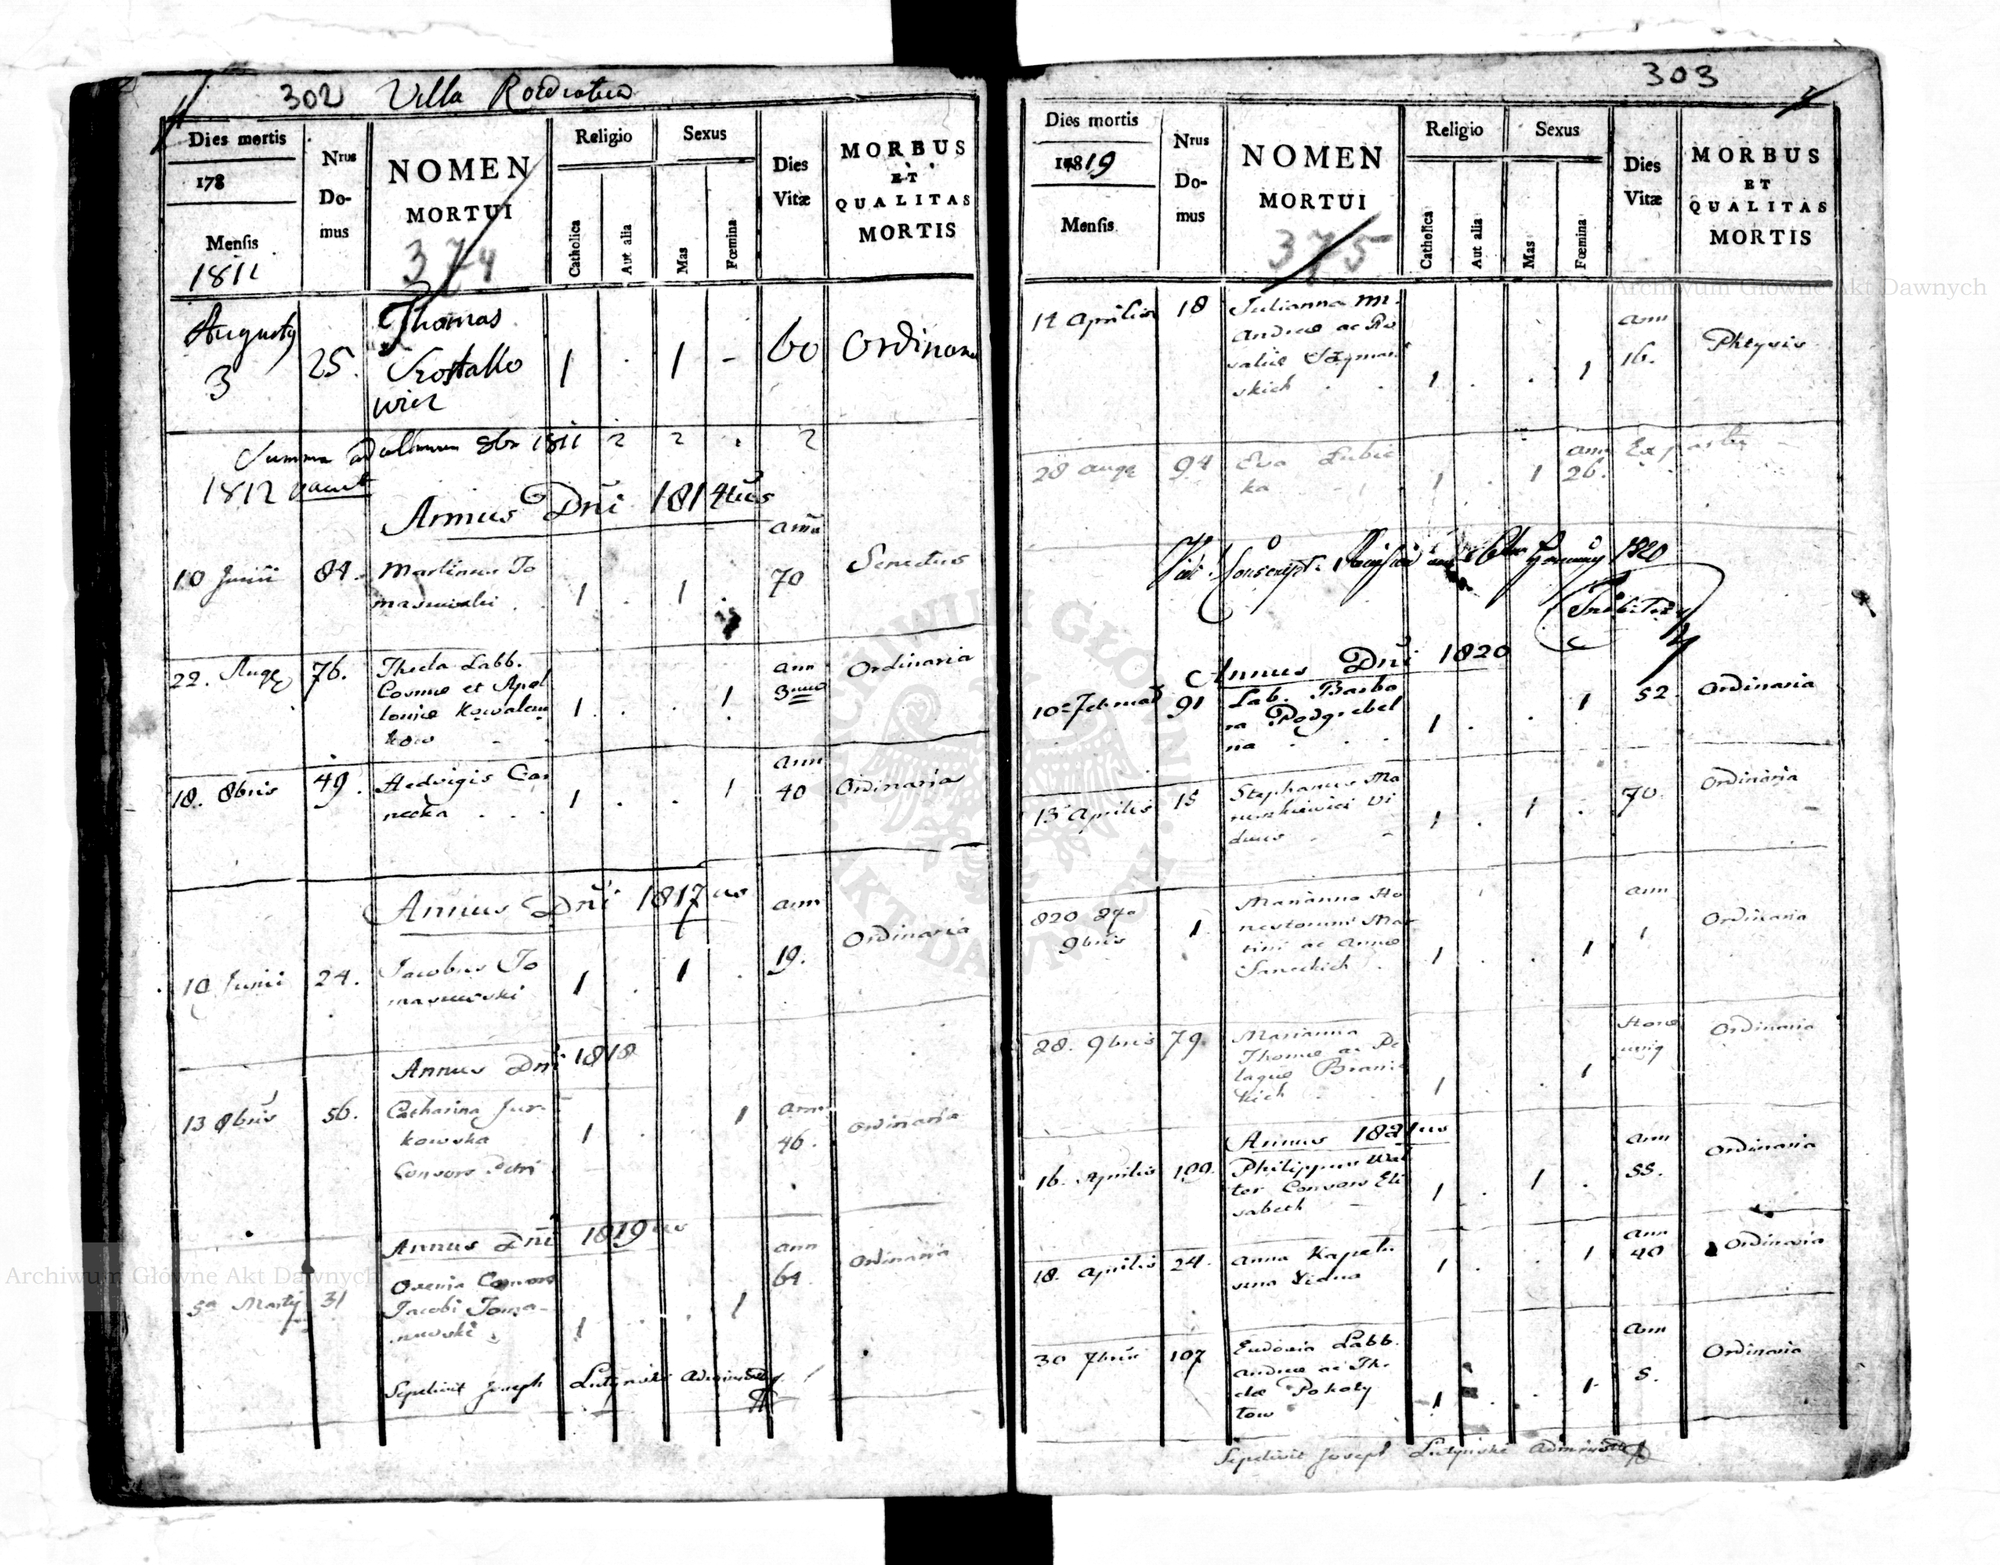 302 Villa
Dies mortis
178
Mensis
1811
Nrus
Do-
mus
NOMEN
MORTUI
374
Religio
Catholica
Aut alia
Sexus
Mas
Fœmina
Dies
Vitæ
MORBUS
ET
QUALITAS
MORTIS
Augusty
3
25.
Thomas
1 . 1 -
60
Ordinaria
Summa 1811 2 2 . 2
1812 vacat
Annus Dni 1814tus
10 Junii
84.
Martinus To
maszewski .
1 . 1 .
ann
70
Senectus
22. Augę
76.
Thecla Labb.
Cosmæ et Apol
loniæ Kowalczu
kow
1 . . 1
ann
Ordinaria
18. 8bris
49.
Hedvigis Czar
necka . . .
1 . . 1
ann
40
Ordinaria
Annus Dni 1817us
10 Junii
24.
Jacobus To
maszewski
1 . 1 .
ann
19.
Ordinaria
Annus Dni 1818
13 8bris
56.
Catharina Jur-
kowska
Consors Petri
1 . . 1
ann
46.
Ordinaria
Annus Dni 1819us
5a Martÿ 31
Consors
Jacobi Toma-
szewski .
1 . . 1
ann
64.
Ordinaria
Sepelivit Joseph Lutynski
303
Dies mortis
1819
Mensis
Nrus
Do-
mus
NOMEN
MORTUI
375
Religio
Catholica
Aut alia
Sexus
Mas
Fœmina
Dies
Vitæ
MORBUS
ET
QUALITAS
MORTIS
Aprilis
18
Julianna
Andreæ ac Ro
saliæ Szyman
skich . .
1 . . 1
ann
16.
Phtysis
28 Augę
94
Eva Lubic
ka
1 . 1
ann
26.
Ex partu
1820
Annus Dni 1820
10a Februar
91
Lab. Barba
ra Podgrebel
na . . .
1 . . 1
52.
Ordinaria
13 Aprilis
15
Stephanus Ma
ruszkiewicz Vi
duus . -
1 . 1 .
70.
Ordinaria
820 27a
9bris
1
Marianna Ho
nestorum Mar
tini ac Annæ
Saneckich .
1 . . 1
ann
1
Ordinaria
28. 9bris
79.
Marianna
Thomæ ac Pe
lagiæ Branic
kich
1 . . 1
Ordinaria
Annus 1821us
16. Aprilis
109.
Philippus Wal
ter Consors Eli
sabeth
1 . 1 .
ann
55.
Ordinaria
18. Aprilis
24.
Anna Kapelu
szna Vidua
1 . . 1
ann
40
Ordinaria
30 7bris
107
Eudoxia Labb.
Andreæ ac The
clæ Poholy
tow
1 . . 1.
ann
5.
Ordinaria
Sepelivit Joseph Lutynski
Archiwum Główne Akt Dawnych
Archiwum Główne Akt Dawnych
ARCHIWUM GŁÓWNE AKT DAWNYCH